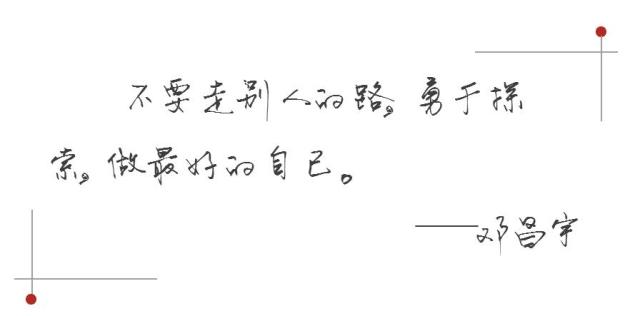 不要走别人的路,勇于探
索,做最好的自己。
——邓昌宇